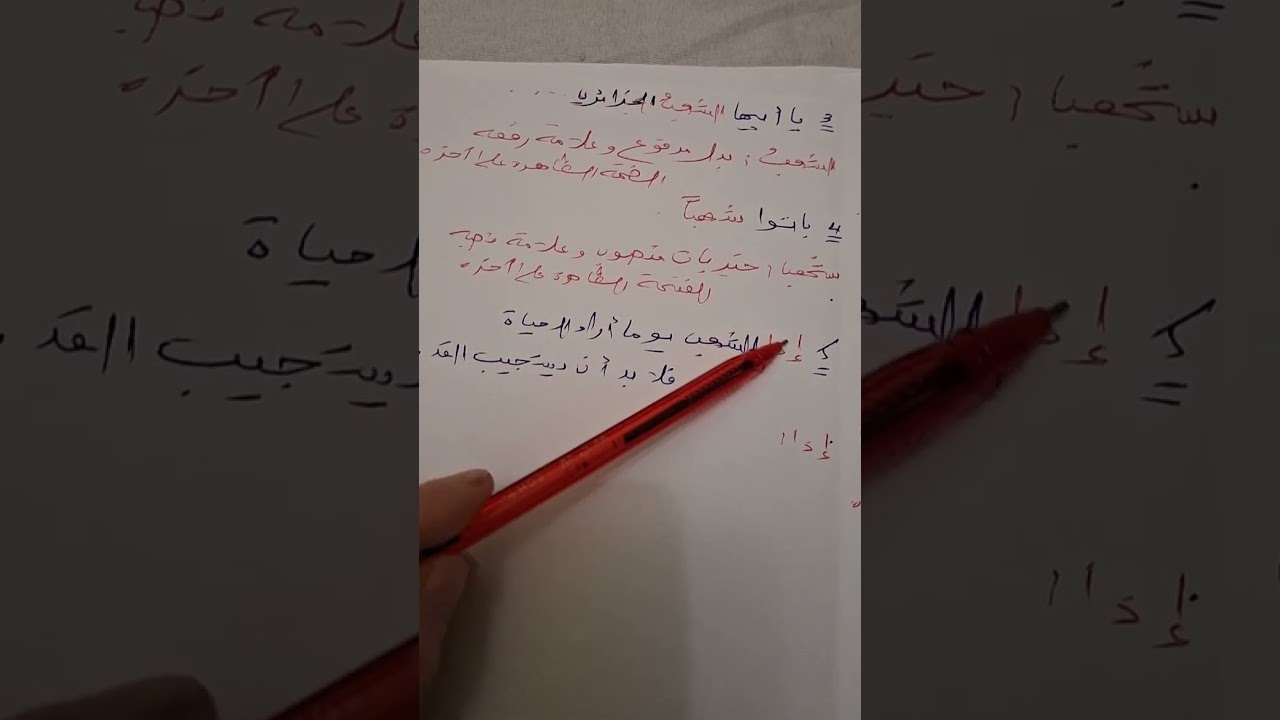 3 يا أيها الشعبُ الجزائري ....
الشعبُ: بدل مرفوع وعلامة رفعه
الضمة الظاهرة على آخره
4 باتوا شعباً.
شعبا: خبر بات منصوب وعلامة نصبه
الفتحة الظاهرة على آخره.
5 إذا الشعب يوما أراد الحياة
فلا بد أن يستجيب القد
إذا